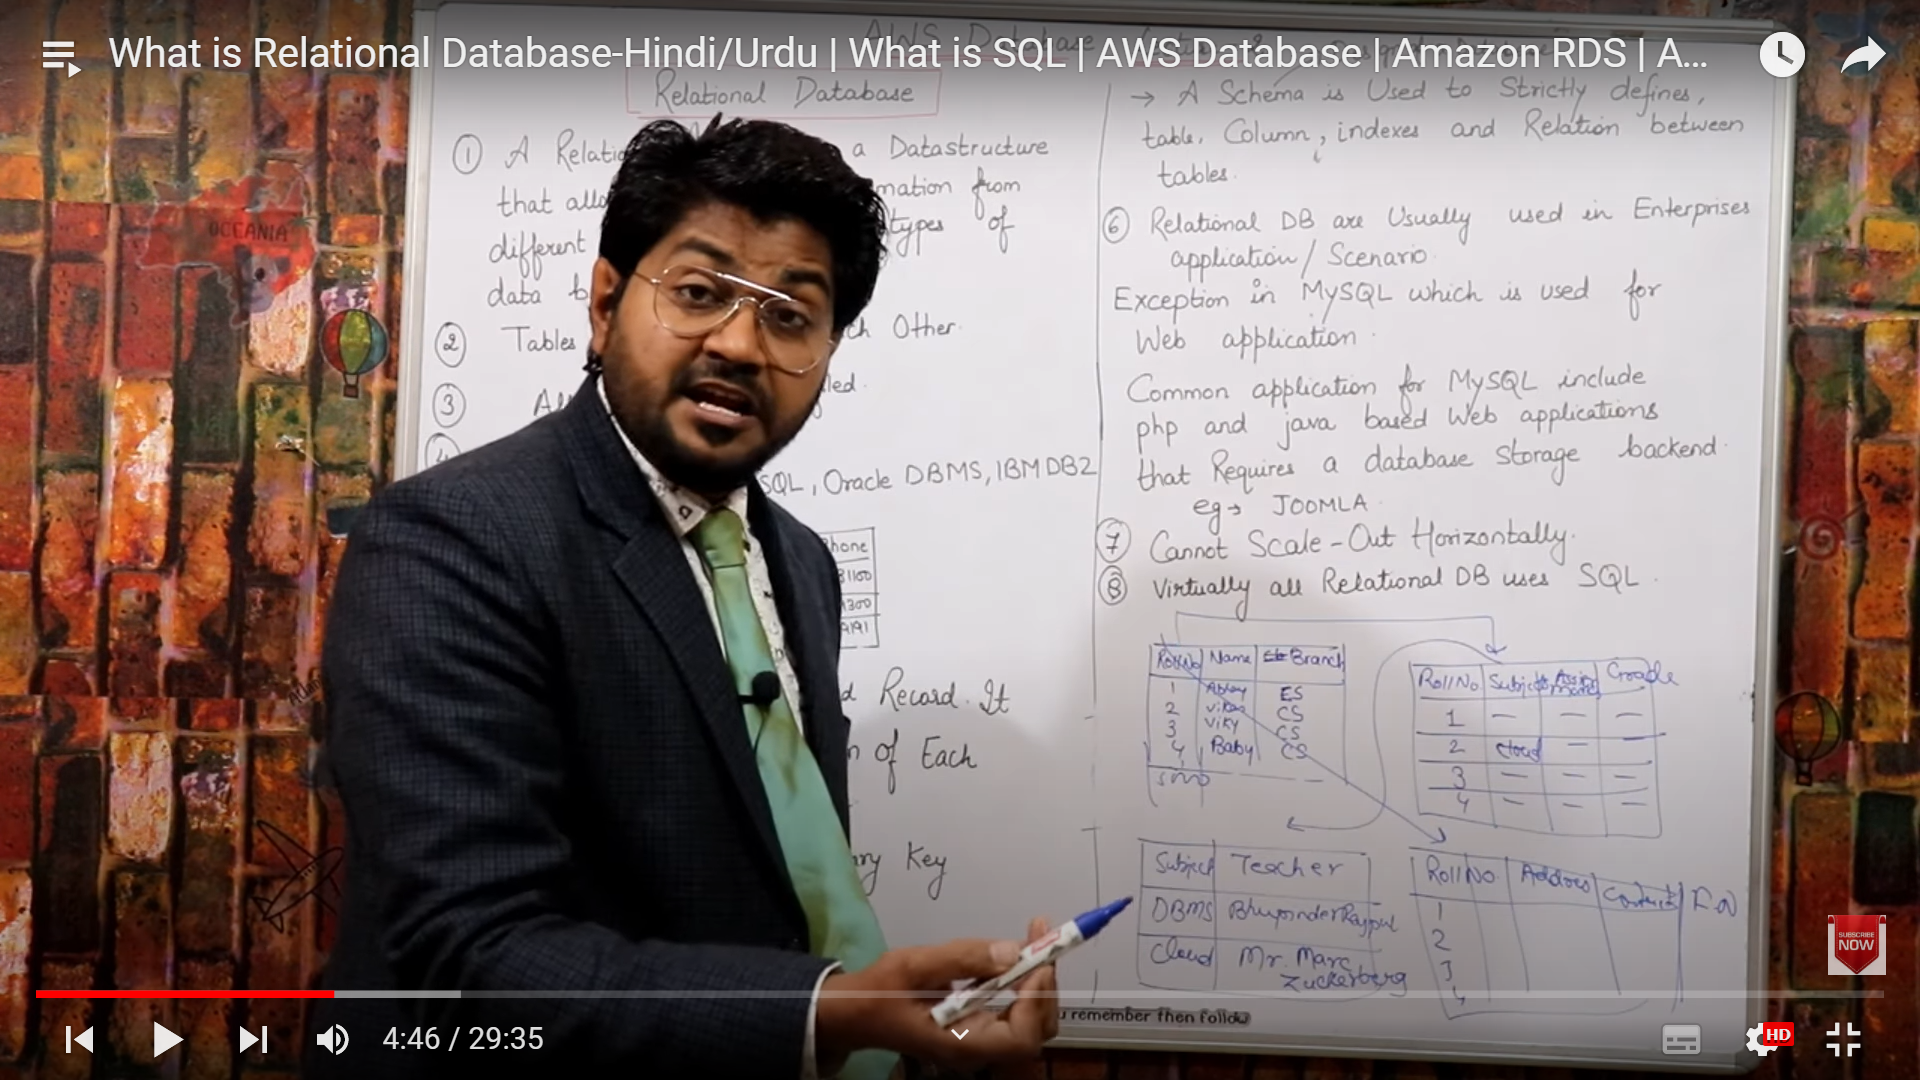 What is Relational Database-Hindi/Urdu | What is SQL | AWS Database | Amazon RDS | A...
AWS Database
Relational Database
① A Relatio a Datastructure
that allo mation from
different types of
data b
② Tables ch Other.
③ All led.
SQL, Oracle DBMS, IBM DB2
Phone
31100
300
9191
d Record. It
n of Each
ary Key
→ A Schema is Used to Strictly defines,
table, Column, indexes and Relation between
tables.
⑥ Relational DB are Usually used in Enterprises
application/Scenario.
Exception in MySQL which is used for
Web application.
Common application for MySQL include
php and java based Web applications
that Requires a database Storage backend.
eg → JOOMLA.
⑦ Cannot Scale-Out Horizontally.
⑧ Virtually all Relational DB uses SQL.
Roll No Name Branch
1 Abhay ES
2 Vikas CS
3 Viky CS
4 Baby CS
Roll No Subject Grade
1 — — —
2 cloud — —
3 — — —
4 — — —
Subject Teacher
DBMS Bhupinder Rajput
Cloud Mr. Marc
Zuckerberg
Roll No Address Contact F.N
1
2
3
4
u remember then follow
OCEANIA
SUBSCRIBE
NOW
4:46 / 29:35
HD